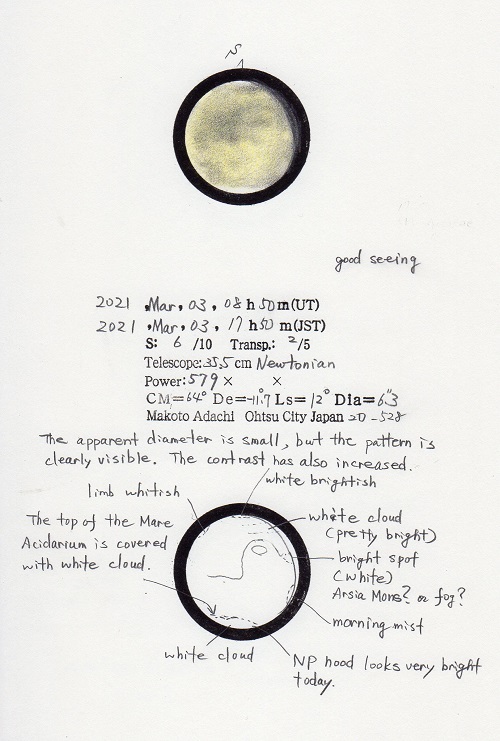 S
good seeing
2021 Mar, 03, 08 h 50 m (UT)
2021 Mar, 03, 17 h 50 m (JST)
S: 6 /10 Transp.: 2/5
Telescope: 35.5 cm Newtonian
Power: 579 × ×
CM=64° De=-11.7° Ls=12° Dia=6".3
Makoto Adachi Ohtsu City Japan 20-528
The apparent diameter is small, but the pattern is
clearly visible. The contrast has also increased.
white brightish
limb whitish
white cloud
(pretty bright)
The top of the Mare
Acidarium is covered
with white cloud.
bright spot
(white)
Arsia Mons? or fog?
morning mist
white cloud
NP hood looks very bright
today.